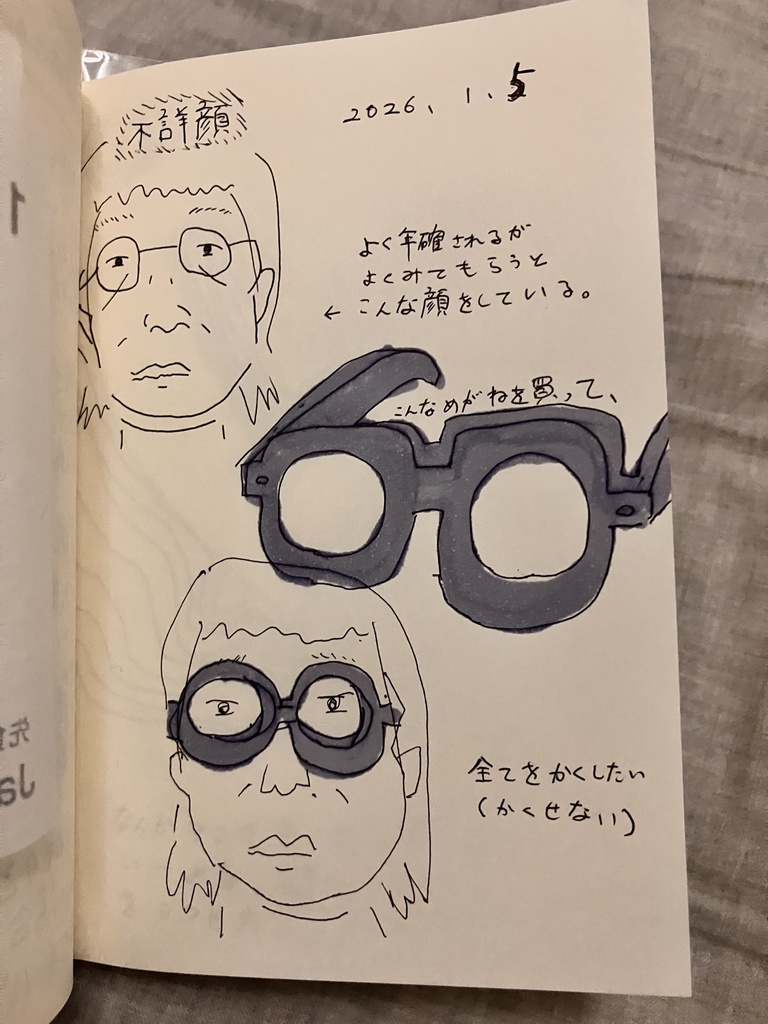 不詳顔
2026. 1. 5
よく年確されるが
よくみてもらうと
← こんな顔をしている。
こんなめがねを買って、
全てをかくしたい
(かくせない)